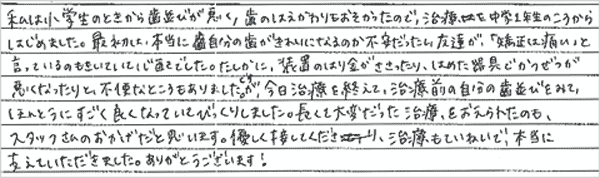 私は小学生のときから歯並びが悪く、歯のはえかわりもおそかったので、治療を中学1年生のころから
はじめました。最初は、本当に自分の歯がきれいになるのか不安だったし、友達が、「矯正は痛い」と
言っているのもきいていて、心配でした。たしかに、装置のはり金がささったり、はめた器具でかつぜつが
悪くなったりと、不便なところもありましたが、今日治療を終えて、治療前の自分の歯並びをみて、
ほんとうにすごく良くなっていてびっくりしました。長くて大変だった治療、をおえられたのも、
スタッフさんのおかげだと思います。優しく接してくださり、治療もていねいで、本当に
支えていただきました。ありがとうございます！